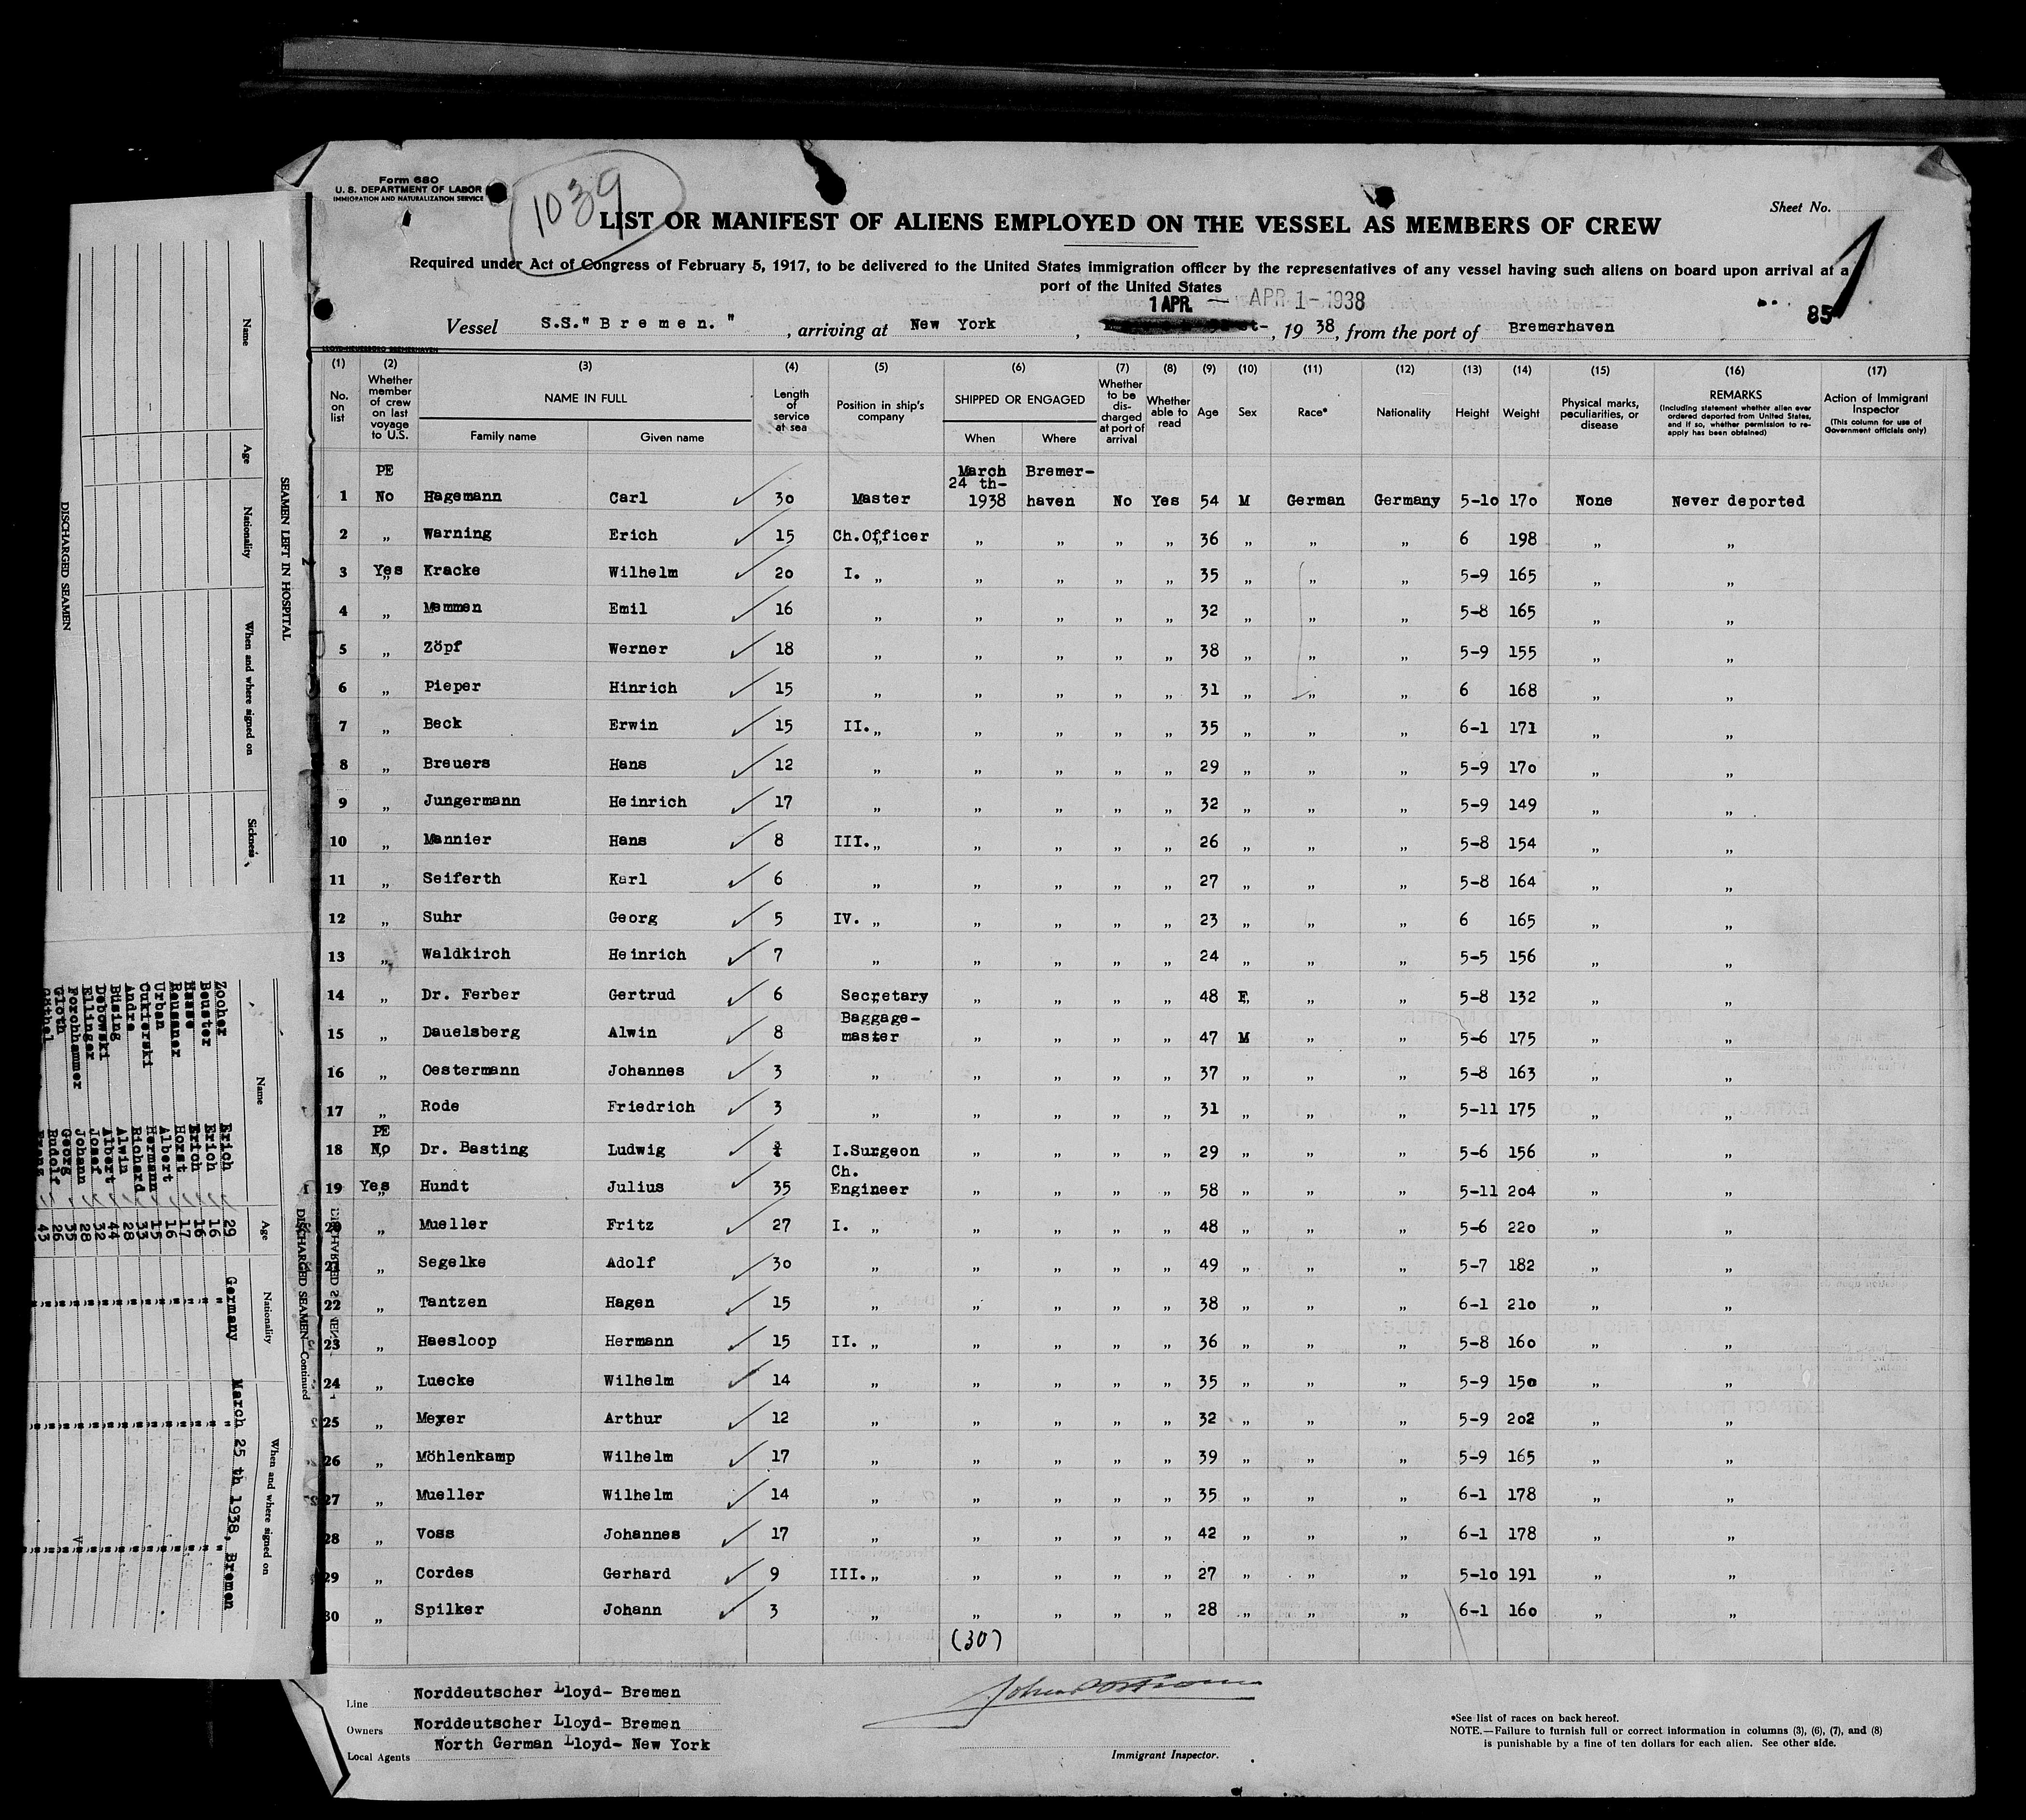 Form 680
U. S. DEPARTMENT OF LABOR
IMMIGRATION AND NATURALIZATION SERVICE
1039
Sheet No.
1
LIST OR MANIFEST OF ALIENS EMPLOYED ON THE VESSEL AS MEMBERS OF CREW
Required under Act of Congress of February 5, 1917, to be delivered to the United States immigration officer by the representatives of any vessel having such aliens on board upon arrival at a
port of the United States
1 APR. — APR 1 - 1938
85
Vessel S.S."Bremen." , arriving at New York , 19 38, from the port of Bremerhaven
(1) No. on list
(2) Whether member of crew on last voyage to U.S.
(3) NAME IN FULL Family name Given name
(4) Length of service at sea
(5) Position in ship's company
(6) SHIPPED OR ENGAGED When Where
(7) Whether to be discharged at port of arrival
(8) Whether able to read
(9) Age
(10) Sex
(11) Race*
(12) Nationality
(13) Height
(14) Weight
(15) Physical marks, peculiarities, or disease
(16) REMARKS (Including statement whether alien ever ordered deported from United States, and if so, whether permission to reapply has been obtained)
(17) Action of Immigrant Inspector (This column for use of Government officials only)
PE March 24 th- Bremer-
1 No Hagemann Carl 30 Master 1938 haven No Yes 54 M German Germany 5-10 170 None Never deported
2 „ Warning Erich 15 Ch.Officer „ „ „ „ 36 „ „ „ 6 198 „ „
3 Yes Kracke Wilhelm 20 I. „ „ „ „ „ 35 „ „ „ 5-9 165 „ „
4 „ Memmen Emil 16 „ „ „ „ „ 32 „ „ „ 5-8 165 „ „
5 „ Zöpf Werner 18 „ „ „ „ „ 38 „ „ „ 5-9 155 „ „
6 „ Pieper Hinrich 15 „ „ „ „ „ 31 „ „ „ 6 168 „ „
7 „ Beck Erwin 15 II. „ „ „ „ „ 35 „ „ „ 6-1 171 „ „
8 „ Breuers Hans 12 „ „ „ „ „ 29 „ „ „ 5-9 170 „ „
9 „ Jungermann Heinrich 17 „ „ „ „ „ 32 „ „ „ 5-9 149 „ „
10 „ Mannier Hans 8 III. „ „ „ „ „ 26 „ „ „ 5-8 154 „ „
11 „ Seiferth Karl 6 „ „ „ „ „ 27 „ „ „ 5-8 164 „ „
12 „ Suhr Georg 5 IV. „ „ „ „ „ 23 „ „ „ 6 165 „ „
13 „ Waldkirch Heinrich 7 „ „ „ „ „ 24 „ „ „ 5-5 156 „ „
14 „ Dr. Ferber Gertrud 6 Secretary „ „ „ „ 48 F „ „ 5-8 132 „ „
15 „ Dauelsberg Alwin 8 Baggage-master „ „ „ „ 47 M „ „ 5-6 175 „ „
16 „ Oestermann Johannes 3 „ „ „ „ „ 37 „ „ „ 5-8 163 „ „
17 „ Rode Friedrich 3 „ „ „ „ „ 31 „ „ „ 5-11 175 „ „
PE
18 No Dr. Basting Ludwig I.Surgeon „ „ „ „ 29 „ „ „ 5-6 156 „ „
19 Yes Hundt Julius 35 Ch. Engineer „ „ „ „ 58 „ „ „ 5-11 204 „ „
20 „ Mueller Fritz 27 I. „ „ „ „ „ 48 „ „ „ 5-6 220 „ „
21 „ Segelke Adolf 30 „ „ „ „ „ 49 „ „ „ 5-7 182 „ „
22 „ Tantzen Hagen 15 „ „ „ „ „ 38 „ „ „ 6-1 210 „ „
23 „ Haesloop Hermann 15 II. „ „ „ „ „ 36 „ „ „ 5-8 160 „ „
24 „ Luecke Wilhelm 14 „ „ „ „ „ 35 „ „ „ 5-9 150 „ „
25 „ Meyer Arthur 12 „ „ „ „ „ 32 „ „ „ 5-9 202 „ „
26 „ Möhlenkamp Wilhelm 17 „ „ „ „ „ 39 „ „ „ 5-9 165 „ „
27 „ Mueller Wilhelm 14 „ „ „ „ „ 35 „ „ „ 6-1 178 „ „
28 „ Voss Johannes 17 „ „ „ „ „ 42 „ „ „ 6-1 178 „ „
29 „ Cordes Gerhard 9 III. „ „ „ „ „ 27 „ „ „ 5-10 191 „ „
30 „ Spilker Johann 3 „ „ „ „ „ 28 „ „ „ 6-1 160 „ „
(30)
Line Norddeutscher Lloyd- Bremen
Owners Norddeutscher Lloyd- Bremen
Local Agents North German Lloyd- New York
Immigrant Inspector.
*See list of races on back hereof.
NOTE.—Failure to furnish full or correct information in columns (3), (6), (7), and (8)
is punishable by a fine of ten dollars for each alien. See other side.
SEAMEN LEFT IN HOSPITAL
Name Age Nationality When and where signed on Sickness
DISCHARGED SEAMEN
DISCHARGED SEAMEN—Continued
Name Age Nationality When and where signed on
Zocher Erich 29 Germany March 25 th 1938, Bremen
Beuster Erich 16 " " "
Hasse Erich 16 " " "
Reussner Horst 17 " " "
Urban Albert 16 " " "
Cukierski Hermann 15 " " "
Andre Richard 33 " " "
Büsing Alwin 28 " " "
Debowski Albert 44 " " "
Ellinger Josef 32 " " "
Forchhammer Johann 28 " " "
Gloth Georg 35 " " "
Rudolf 26 " " "
43 " " "